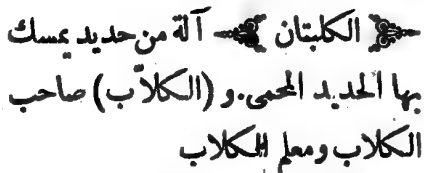 الكلبتان آلة من حديد يمسك
بها الحديد المحمى. و (الكلاّب) صاحب
الكلاب ومعلم الكلاب